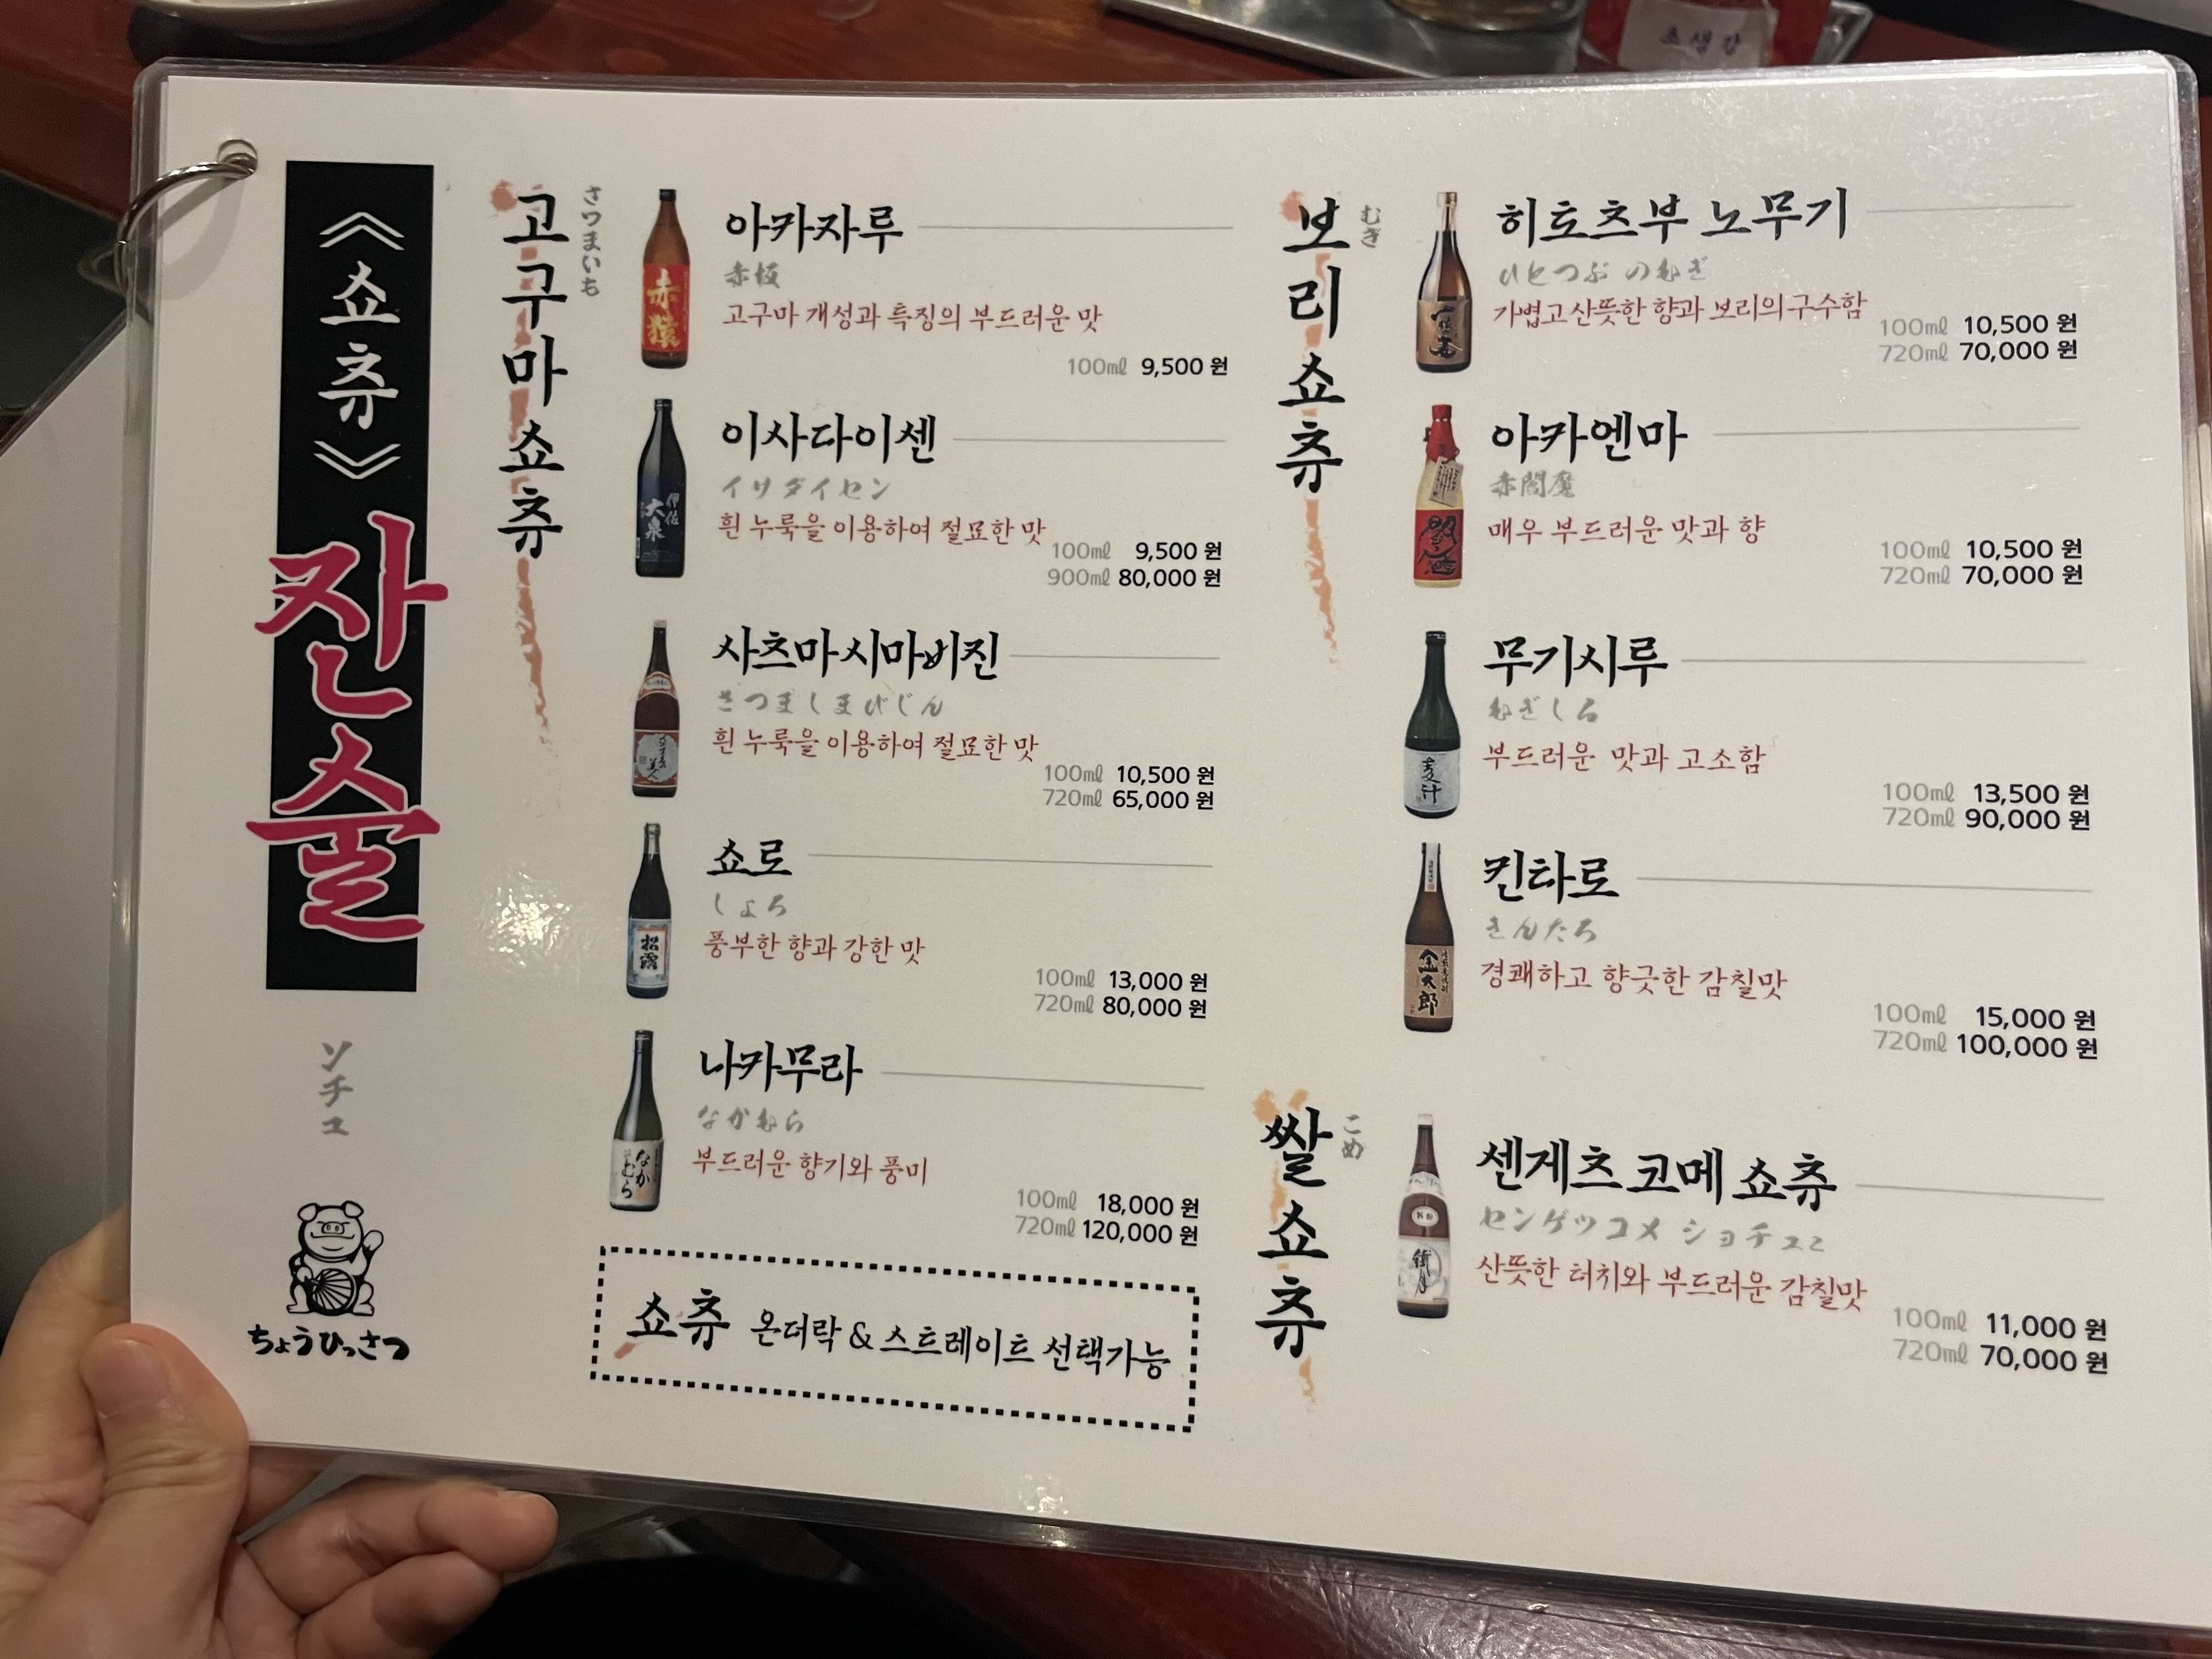 초생강
《쇼츄》
잔술
ソチュ
ちょうひっさつ
고구마 쇼츄
さつまいも
아카자루
赤坂
고구마 개성과 특징의 부드러운 맛
100㎖ 9,500 원
赤猿
이사다이센
イサダイセン
흰 누룩을 이용하여 절묘한 맛
100㎖ 9,500 원
900㎖ 80,000 원
伊佐
大泉
사츠마 시마비진
さつましまびじん
흰 누룩을 이용하여 절묘한 맛
100㎖ 10,500 원
720㎖ 65,000 원
美人
쇼로
しょろ
풍부한 향과 강한 맛
100㎖ 13,000 원
720㎖ 80,000 원
松露
나카무라
なかむら
부드러운 향기와 풍미
100㎖ 18,000 원
720㎖ 120,000 원
なかむら
쇼츄 온더락 & 스트레이트 선택가능
보리 쇼츄
むぎ
히토츠부 노무기
ひとつぶ のむぎ
가볍고 산뜻한 향과 보리의 구수함
100㎖ 10,500 원
720㎖ 70,000 원
아카엔마
赤閻魔
매우 부드러운 맛과 향
100㎖ 10,500 원
720㎖ 70,000 원
무기시루
むぎしる
부드러운 맛과 고소함
100㎖ 13,500 원
720㎖ 90,000 원
麦汁
킨타로
きんたろ
경쾌하고 향긋한 감칠맛
100㎖ 15,000 원
720㎖ 100,000 원
金太郎
쌀 쇼츄
こめ
센게츠 코메 쇼츄
センゲツコメ ショチュミ
산뜻한 터치와 부드러운 감칠맛
100㎖ 11,000 원
720㎖ 70,000 원